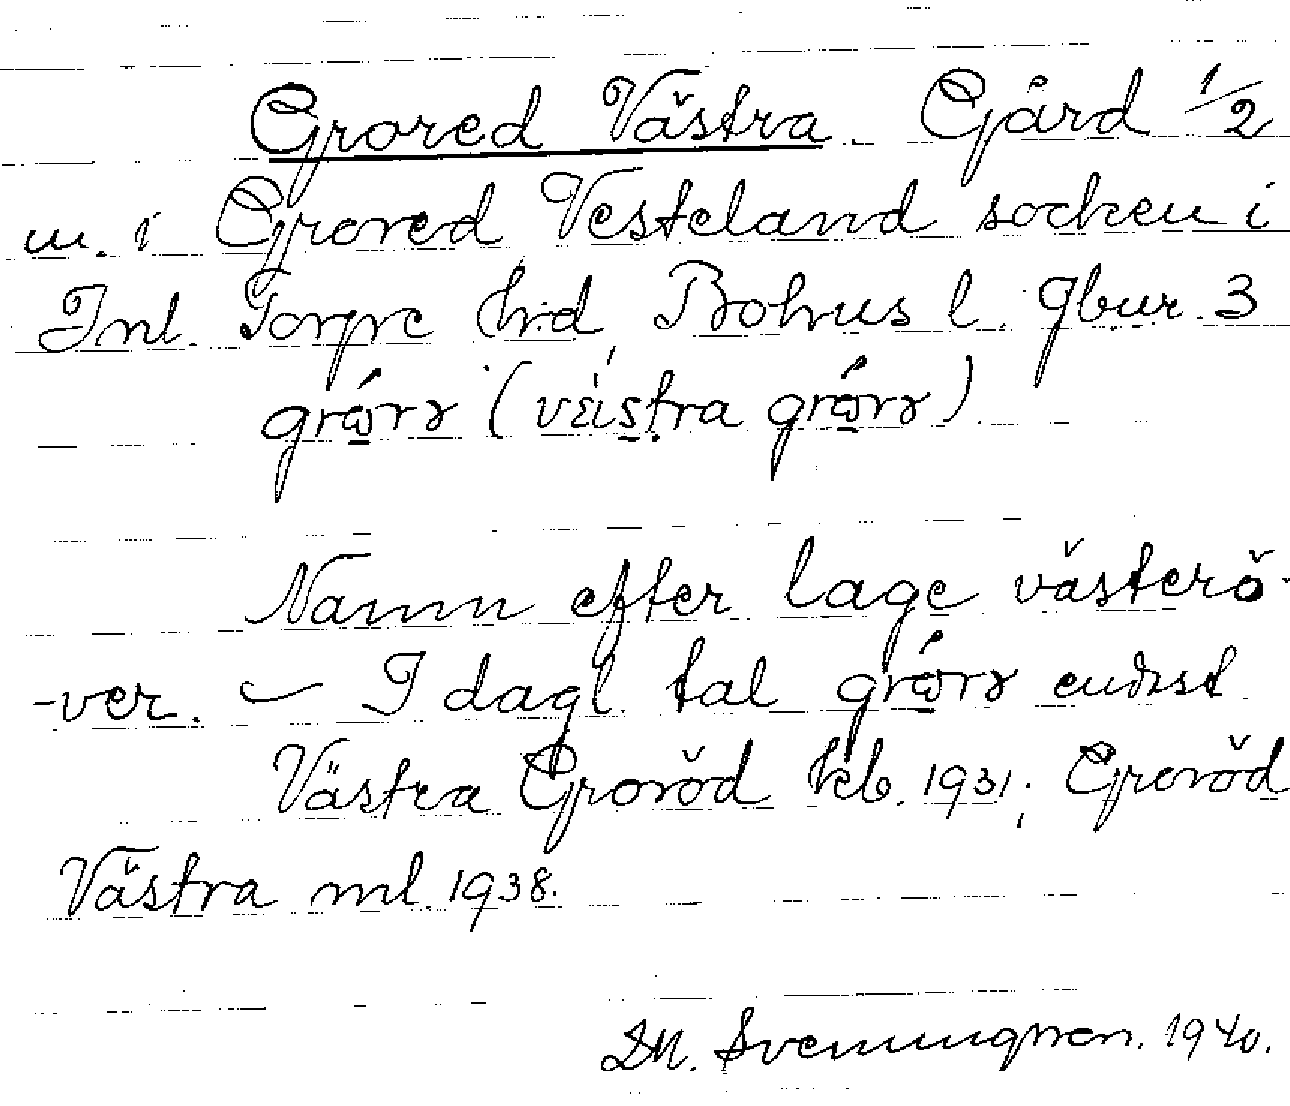 Grored Västra. Gård 1/2
m. i Grored Vesteland socken i
Inl. Torpe hrd, Bohus l. Gbur. 3
(västra
Namn efter lage västerö-
-ver. – I dagl. tal endast
Västra Groröd kb. 1931; Groröd
Västra ml. 1938.
DN. Svenungsson. 1940.